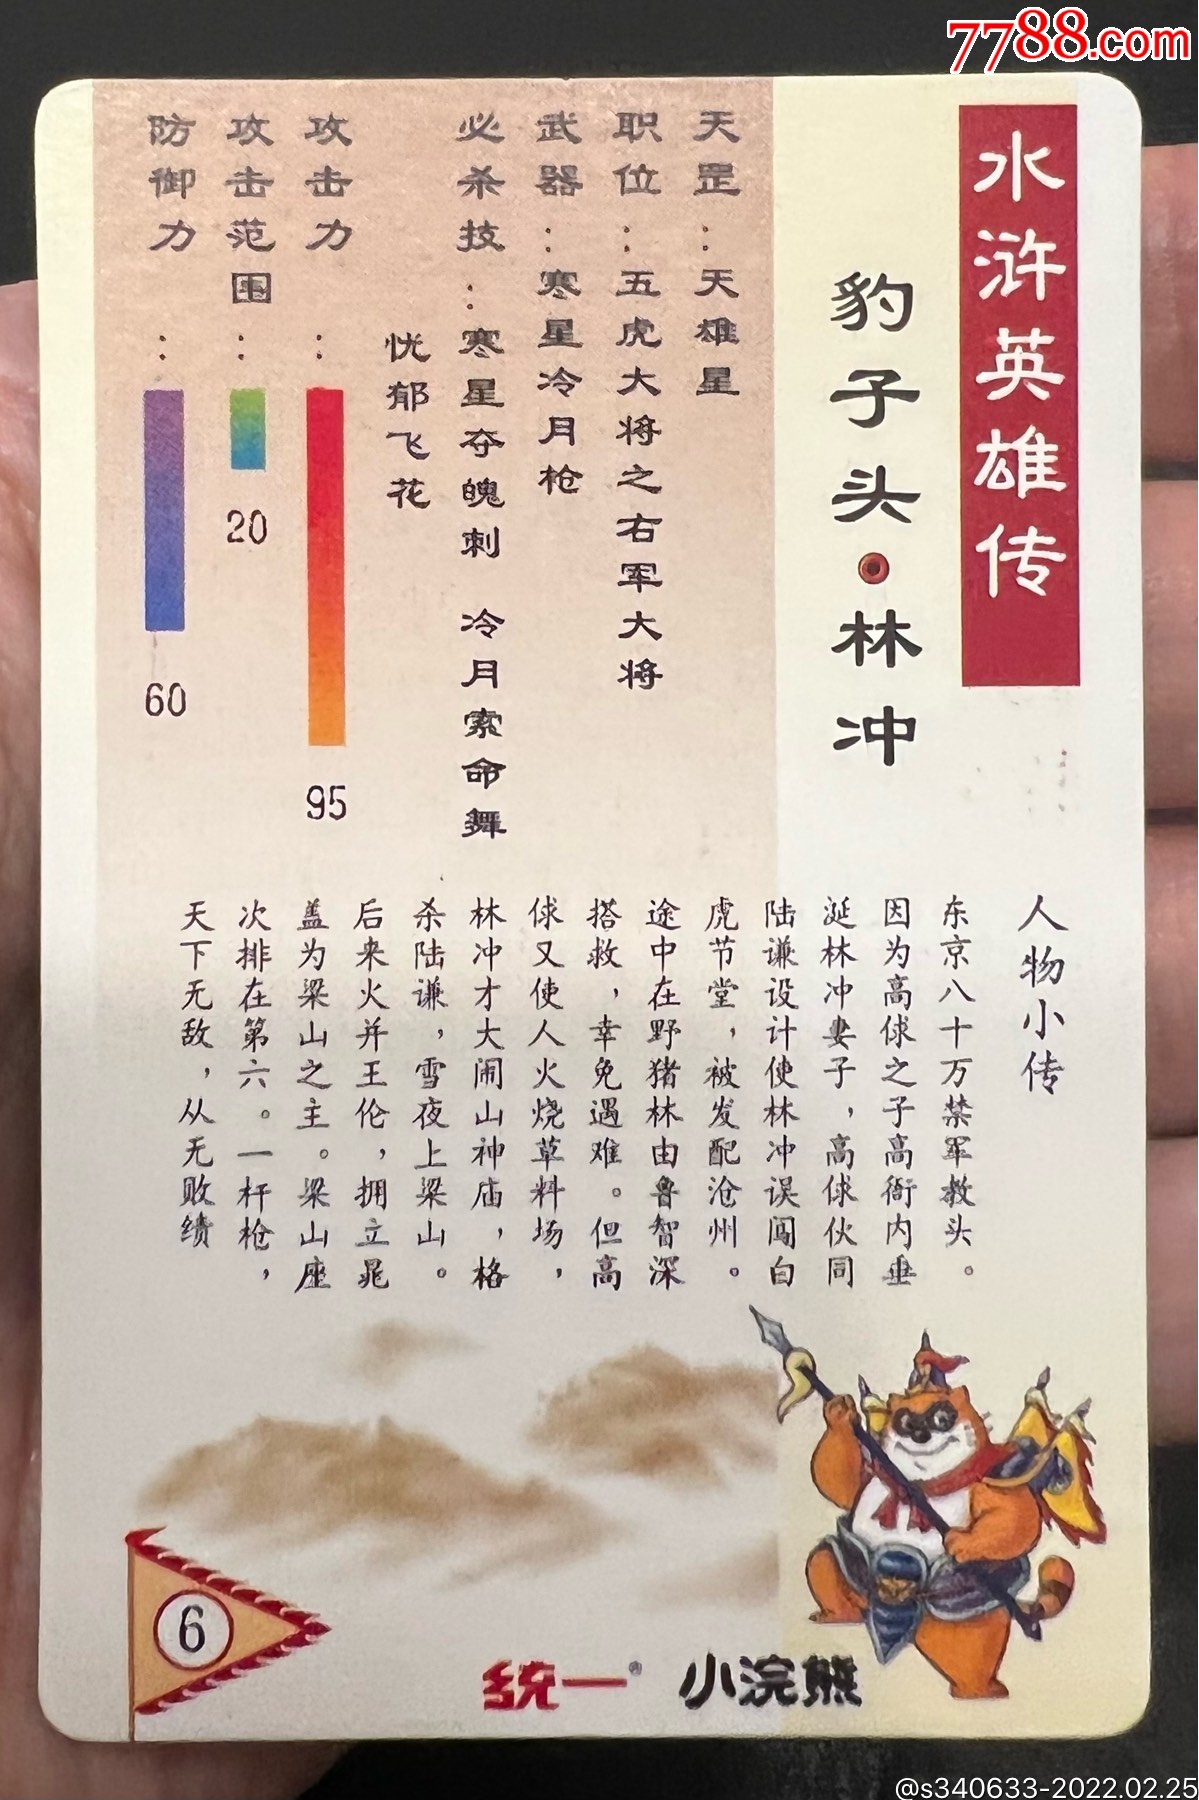 7788.com
水浒英雄传
豹子头·林冲
天罡：天雄星
职位：五虎大将之右军大将
武器：寒星冷月枪
必杀技：寒星夺魄刺 冷月索命舞
恍郁飞花
攻击力：
95
攻击范围：
20
防御力：
60
人物小传
东京八十万禁军教头。
因为高俅之子高衙内垂
涎林冲妻子，高俅伙同
陆谦设计使林冲误闯白
虎节堂，被发配沧州。
途中在野猪林由鲁智深
搭救，幸免遇难。但高
俅又使人火烧草料场，
林冲才大闹山神庙，格
杀陆谦，雪夜上梁山。
后来火并王伦，拥立晁
盖为梁山之主。梁山座
次排在第六。一杆枪，
天下无敌，从无败绩
6
统一® 小浣熊
@s340633-2022.02.25